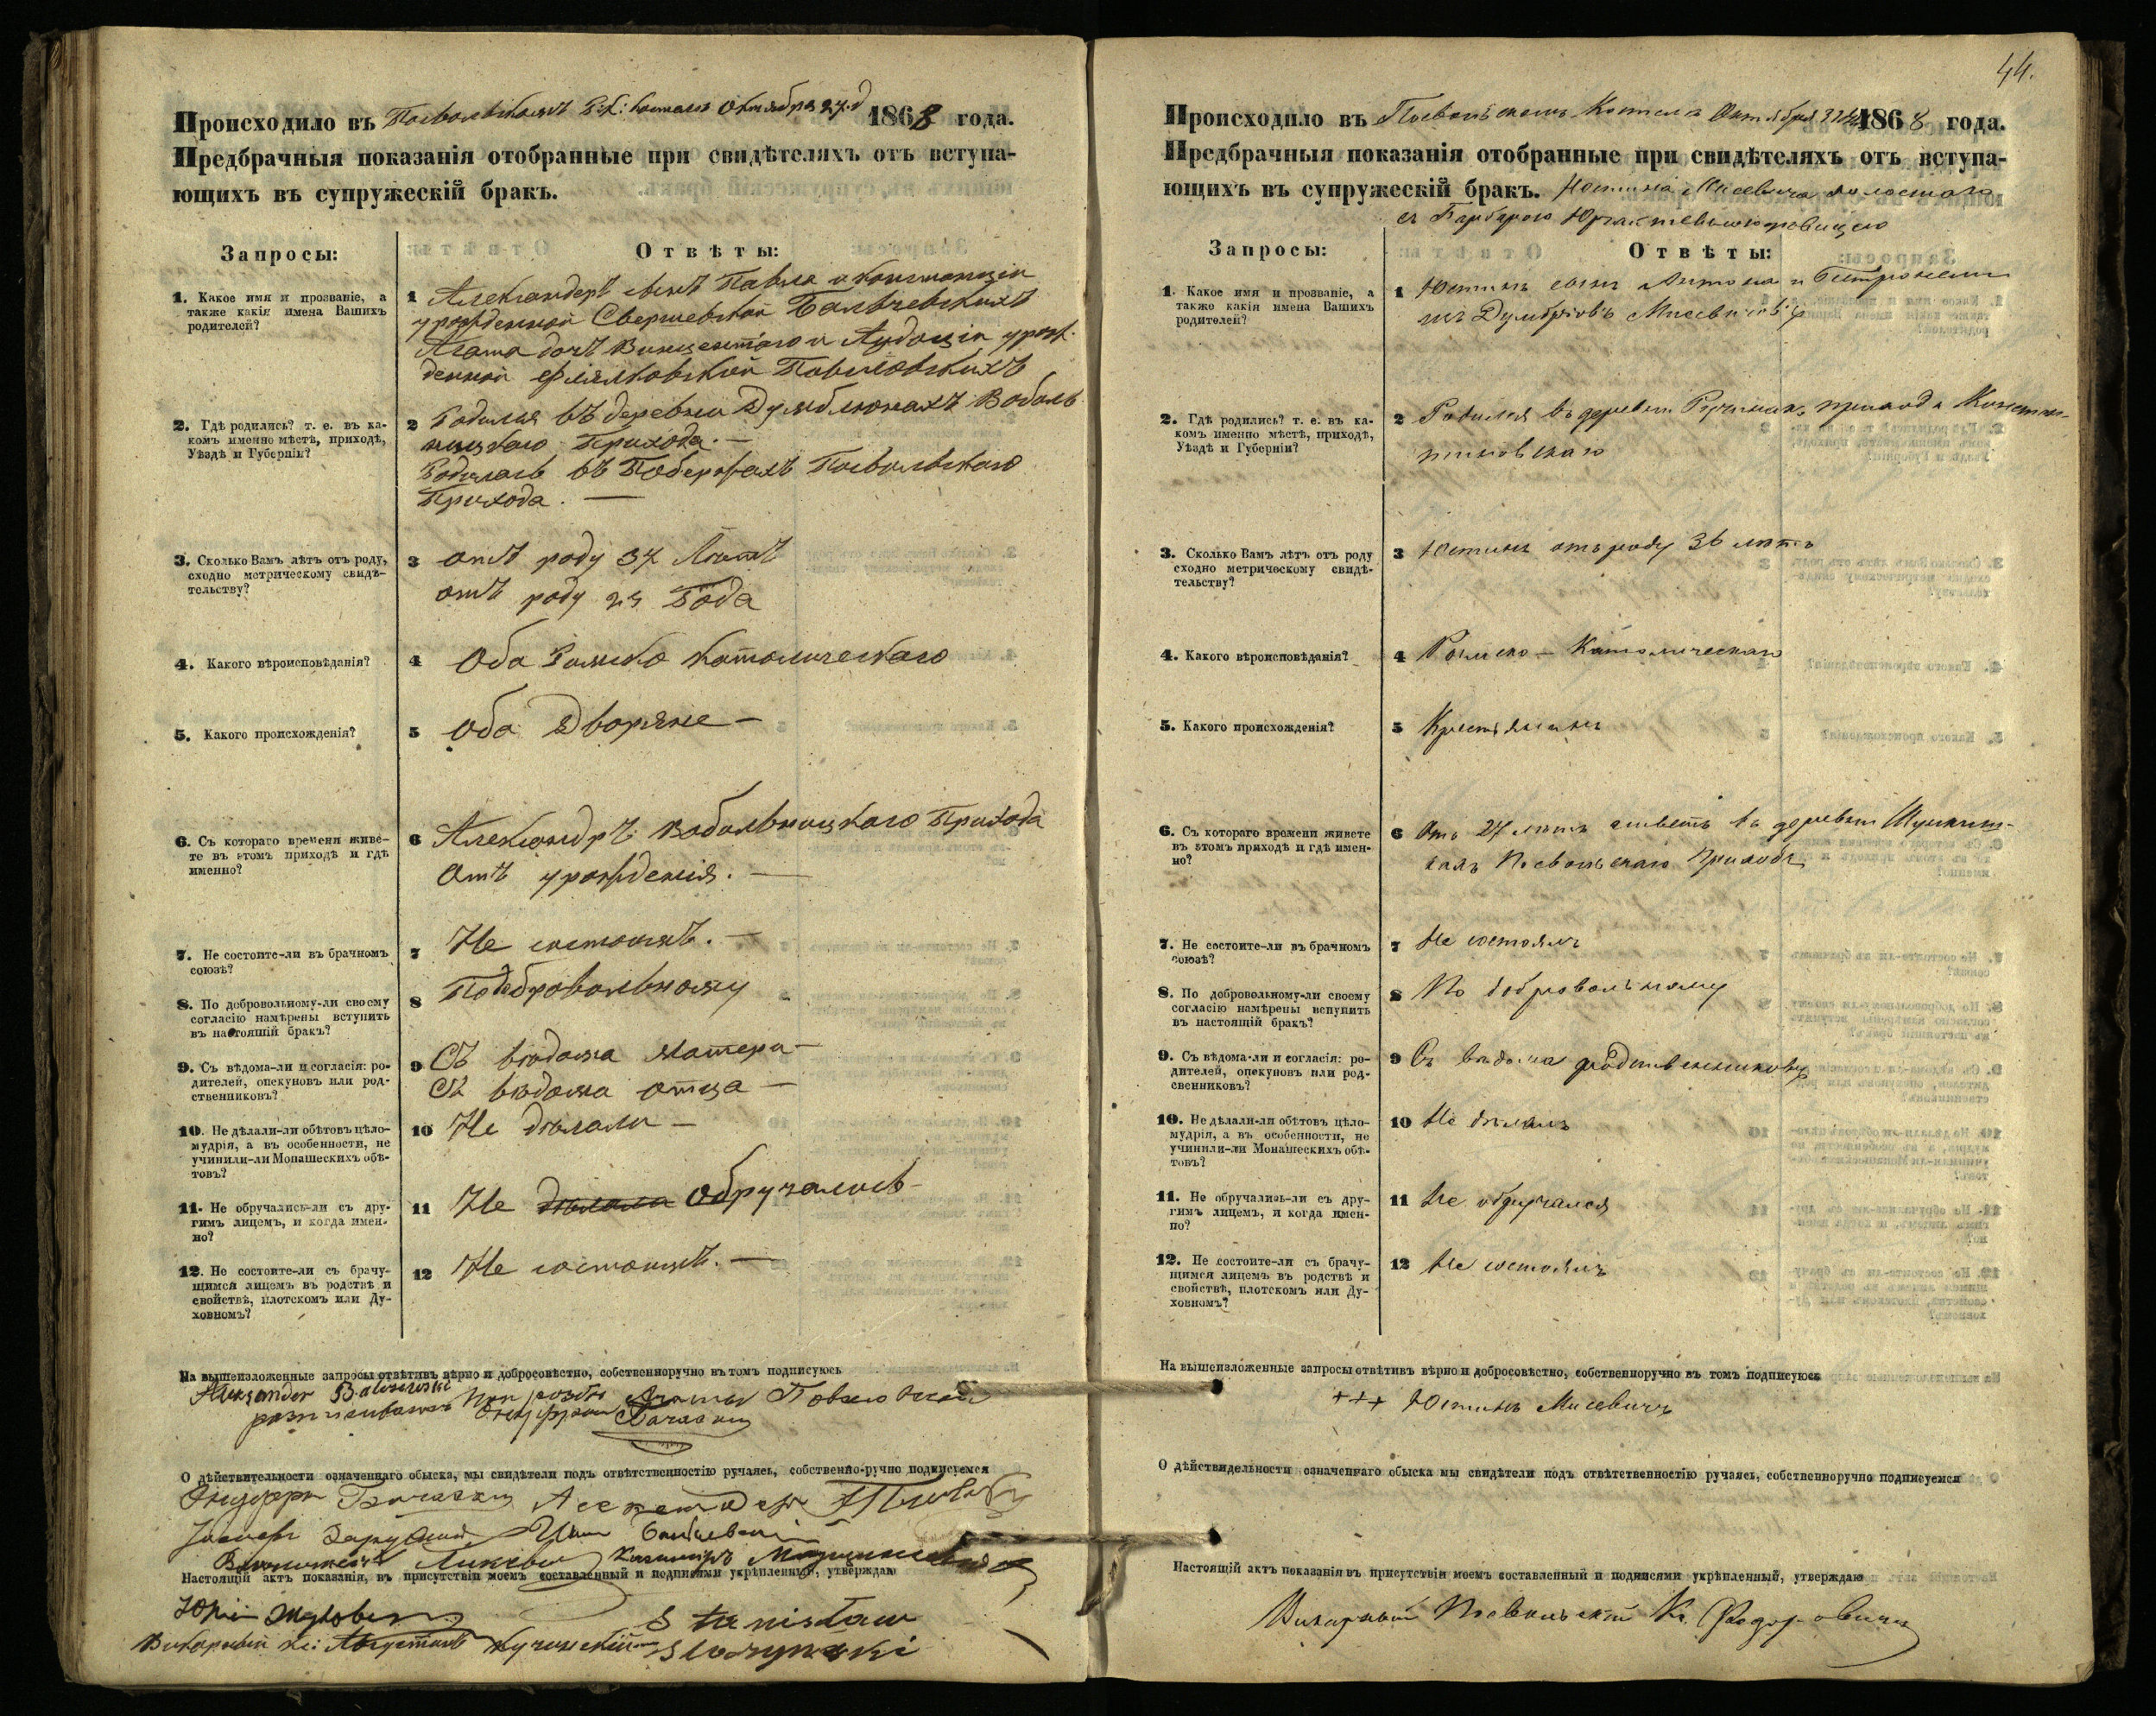 Происходило въ Посвольскомъ Р. К: костелѣ Октября 27.д 1868 года.
Предбрачныя показанія отобранные при свидѣтеляхъ отъ вступа-
ющихъ въ супружескій бракъ.
Запросы:
Отвѣты:
1. Какое имя и прозваніе, а
также какія имена Вашихъ
родителей?
1 Александеръ сынъ Павла и Констанціи
урожденной Свершевской Бальчевскихъ
Агата дочъ Винцентаго и Людвиціи урож-
денной Фіялковской Повиловскихъ
2. Гдѣ родились? т. е. въ ка-
комъ именно мѣстѣ, приходѣ,
Уѣздѣ и Губерніи?
2 Родился въ деревни Думблюнахъ Воболь
ницкаго Прихода. —
Родилась въ Побержахъ Посвольскаго
Прихода. —
3. Сколько Вамъ лѣтъ отъ роду,
сходно метрическому свидѣ-
тельству?
3 отъ роду 37 Лѣтъ
отъ роду 23 Года
4. Какого вѣроисповѣданія?
4 Оба Римско католическаго
5. Какого происхожденія?
5 Оба Дворяне —
6. Съ котораго времени живе-
те въ этомъ приходѣ и гдѣ
именно?
6 Александръ Вобольницкаго Прихода
Отъ урожденія. —
7. Не состоите-ли въ брачномъ
союзѣ?
7 Не состоимъ. —
8. По добровольному-ли своему
согласію намѣрены вступить
въ настоящій бракъ?
8 По добровольному
9. Съ вѣдома-ли и согласія: ро-
дителей, опекуновъ или род-
ственниковъ?
9 Съ вѣдома матери —
Съ вѣдома отца —
10. Не дѣлали-ли обѣтовъ цѣло-
мудрія, а въ особенности, не
учинили-ли Монашескихъ обѣ-
товъ?
10 Не дѣлали —
11. Не обручались-ли съ дру-
гимъ лицемъ, и когда имен-
но?
11 Не дѣлали Обручались —
12. Не состоите-ли съ брачу-
щимся лицемъ въ родствѣ и
свойствѣ, плотскомъ или Ду-
ховномъ?
12 Не состоимъ. —
На вышеизложенные запросы отвѣтивъ вѣрно и добросовѣстно, собственноручно въ томъ подписуюсь
Alexander Balczewski
О дѣйствительности означеннаго обыска, мы свидѣтели подъ отвѣтственностію ручаясь, собственно-ручно подписуемся
Настоящій актъ показанія, въ присутствіи моемъ составленный и подписями укрѣпленный, утверждаю
Stanisław
44.
Происходило въ Посвольскомъ Костелѣ Октября 1868 года.
Предбрачныя показанія отобранные при свидѣтеляхъ отъ вступа-
ющихъ въ супружескій бракъ. Юстина Мисевича холостаго
съ Барбарою
Запросы:
Отвѣты:
1. Какое имя и прозваніе, а
также какія имена Вашихъ
родителей?
1 Юстинъ сынъ Антона и Петронели
изъ Думбровъ Мисевичовъ
2. Гдѣ родились? т. е. въ ка-
комъ именно мѣстѣ, приходѣ,
Уѣздѣ и Губерніи?
2 Родился въ деревни прихода Констан-
тиновскаго
3. Сколько Вамъ лѣтъ отъ роду
сходно метрическому свидѣ-
тельству?
3 Юстинъ отъ роду 36 лѣтъ
4. Какого вѣроисповѣданія?
4 Римско — Католическаго
5. Какого происхожденія?
5 Крестьянинъ
6. Съ котораго времени живете
въ этомъ приходѣ и гдѣ имен-
но?
6 Отъ 27 лѣтъ живетъ въ деревни
Посвольскаго Прихода
7. Не состоите-ли въ брачномъ
союзѣ?
7 Не состоялъ
8. По добровольному-ли своему
согласію намѣрены вспупить
въ настоящій бракъ?
8 По добровольному
9. Съ вѣдома-ли и согласія: ро-
дителей, опекуновъ или род-
свенниковъ?
9 Съ вѣдома родственниковъ
10. Не дѣлали-ли обѣтовъ цѣло-
мудрія, а въ особенности, не
учинили-ли Монашескихъ обѣ-
товъ?
10 Не дѣлалъ
11. Не обручались-ли съ дру-
гимъ лицемъ, и когда имен-
но?
11 Не обручался
12. Не состоите-ли съ брачу-
щимся лицемъ въ родствѣ и
свойствѣ, плотскомъ или Ду-
ховномъ?
12 Не состоялъ
На вышеизложенные запросы отвѣтивъ вѣрно и добросовѣстно, собственноручно въ томъ подписуюсь
+++ Юстинъ Мисевичъ
О дѣйствидельности означеннаго обыска мы свидѣтели подъ отвѣтственностію ручаясь, собственноручно подписуемся
Настоящій актъ показанія въ присутствіи моемъ составленный и подписями укрѣпленный, утверждаю
Викарный Посвольскій Кс.